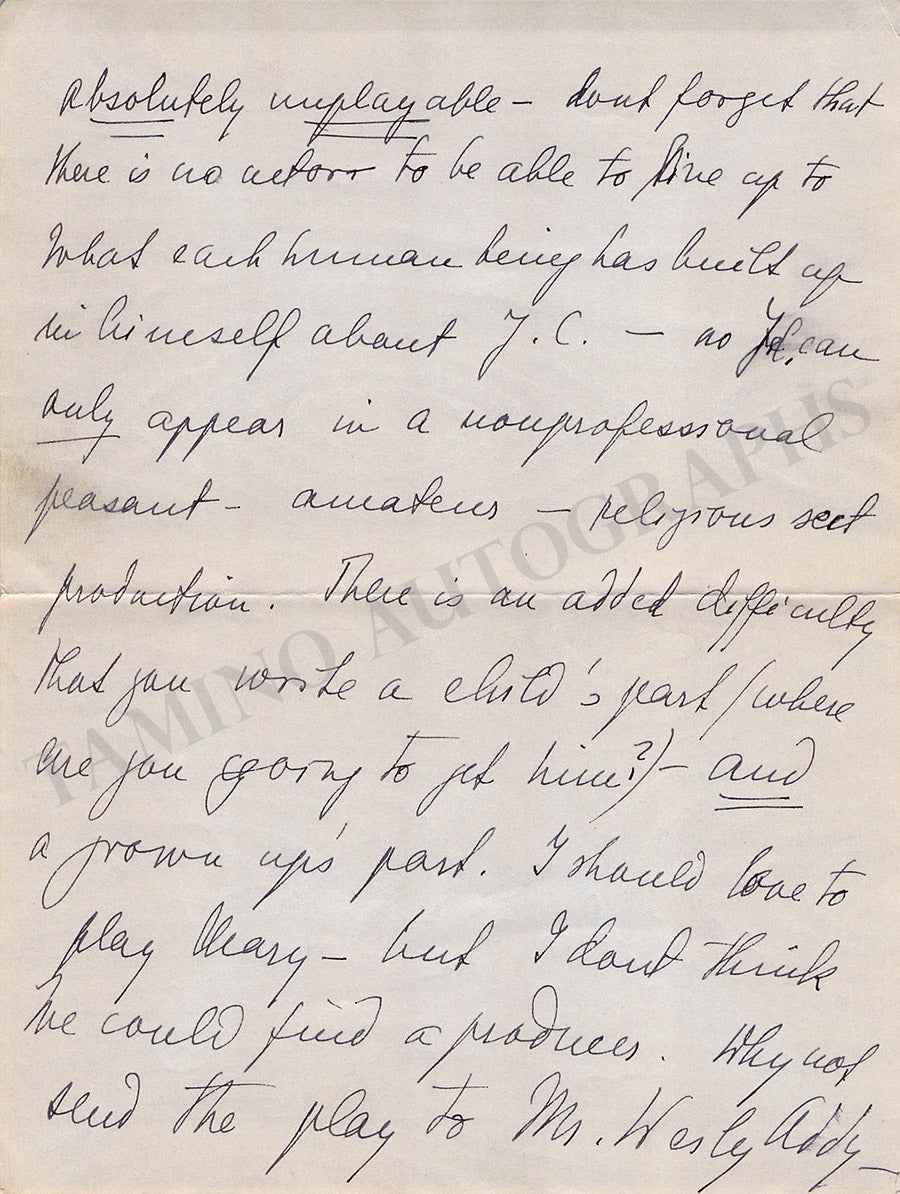 absolutely unplayable – dont forget that
there is no actorr to be able to live up to
what each human being has built up
in himself about J.C. – no J.C. can
only appear in a nonprofessional
peasant – amateur – religious sect
production. There is an added difficulty
that you wrote a child's part (where
are you going to get him?) – and
a grown up's part. I should love to
play Mary – but I dont think
we could find a producer. Why not
send the play to Mr. Wesly Addy –
TAMINO AUTOGRAPHS